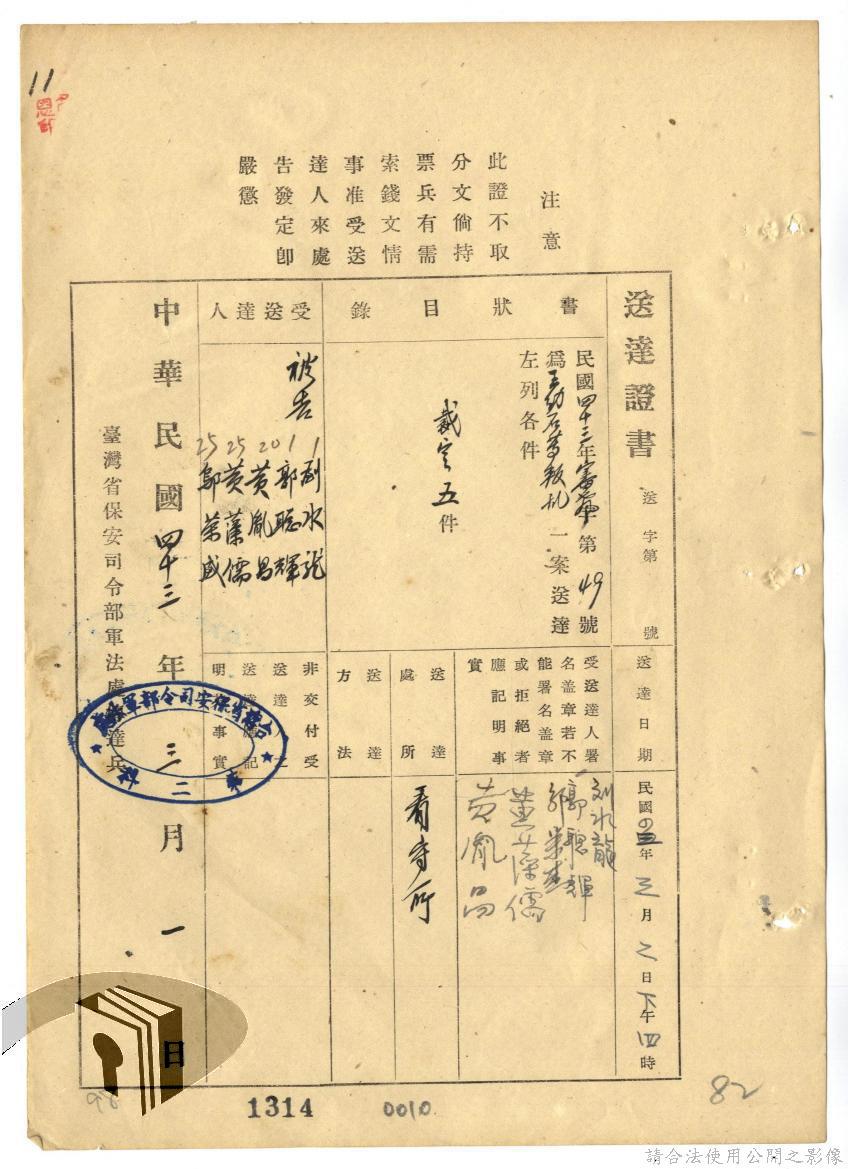 11
注意
此證不取
分文倘持
票兵有需
索錢文情
事准受送
達人來處
告發定卽
嚴懲
送達證書
送字第　號
送達日期
民國四三年三月之日下午四時
書狀目錄
民國四十三年審第49號
為王幼石等叛亂一案送達
左列各件
裁定五件
受送達人署
名盖章若不
能署名盖章
或拒絕者
應記明事
實
劉水龍
郭聰輝
鄔榮盛
黃藻儒
黃胤昌
送達處所
看守所
送達方法
受送達人
被告
1 劉水龍
1 郭聰輝
20 黃胤昌
25 黃藻儒
25 鄔榮盛
非交付受
送達人之
送達應記
明事實
中華民國四十三年三月一日
臺灣省保安司令部軍法處送達兵
1314
0010
82
請合法使用公開之影像